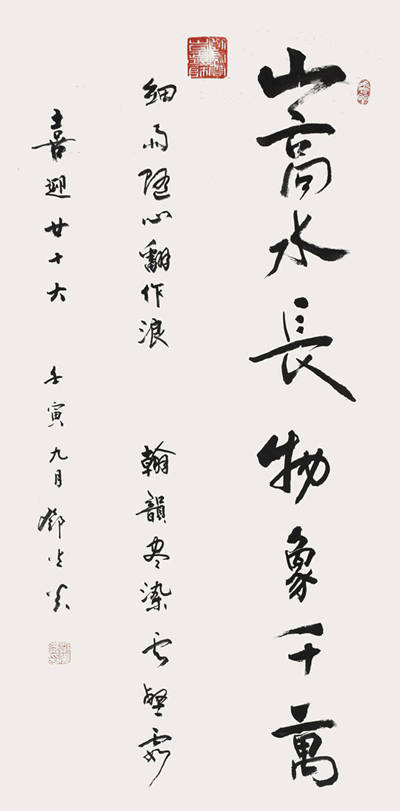 山高水長物象千萬
細雨隨心翻作浪
翰韻尽染云壑
喜迎廿十大
壬寅九月鄧